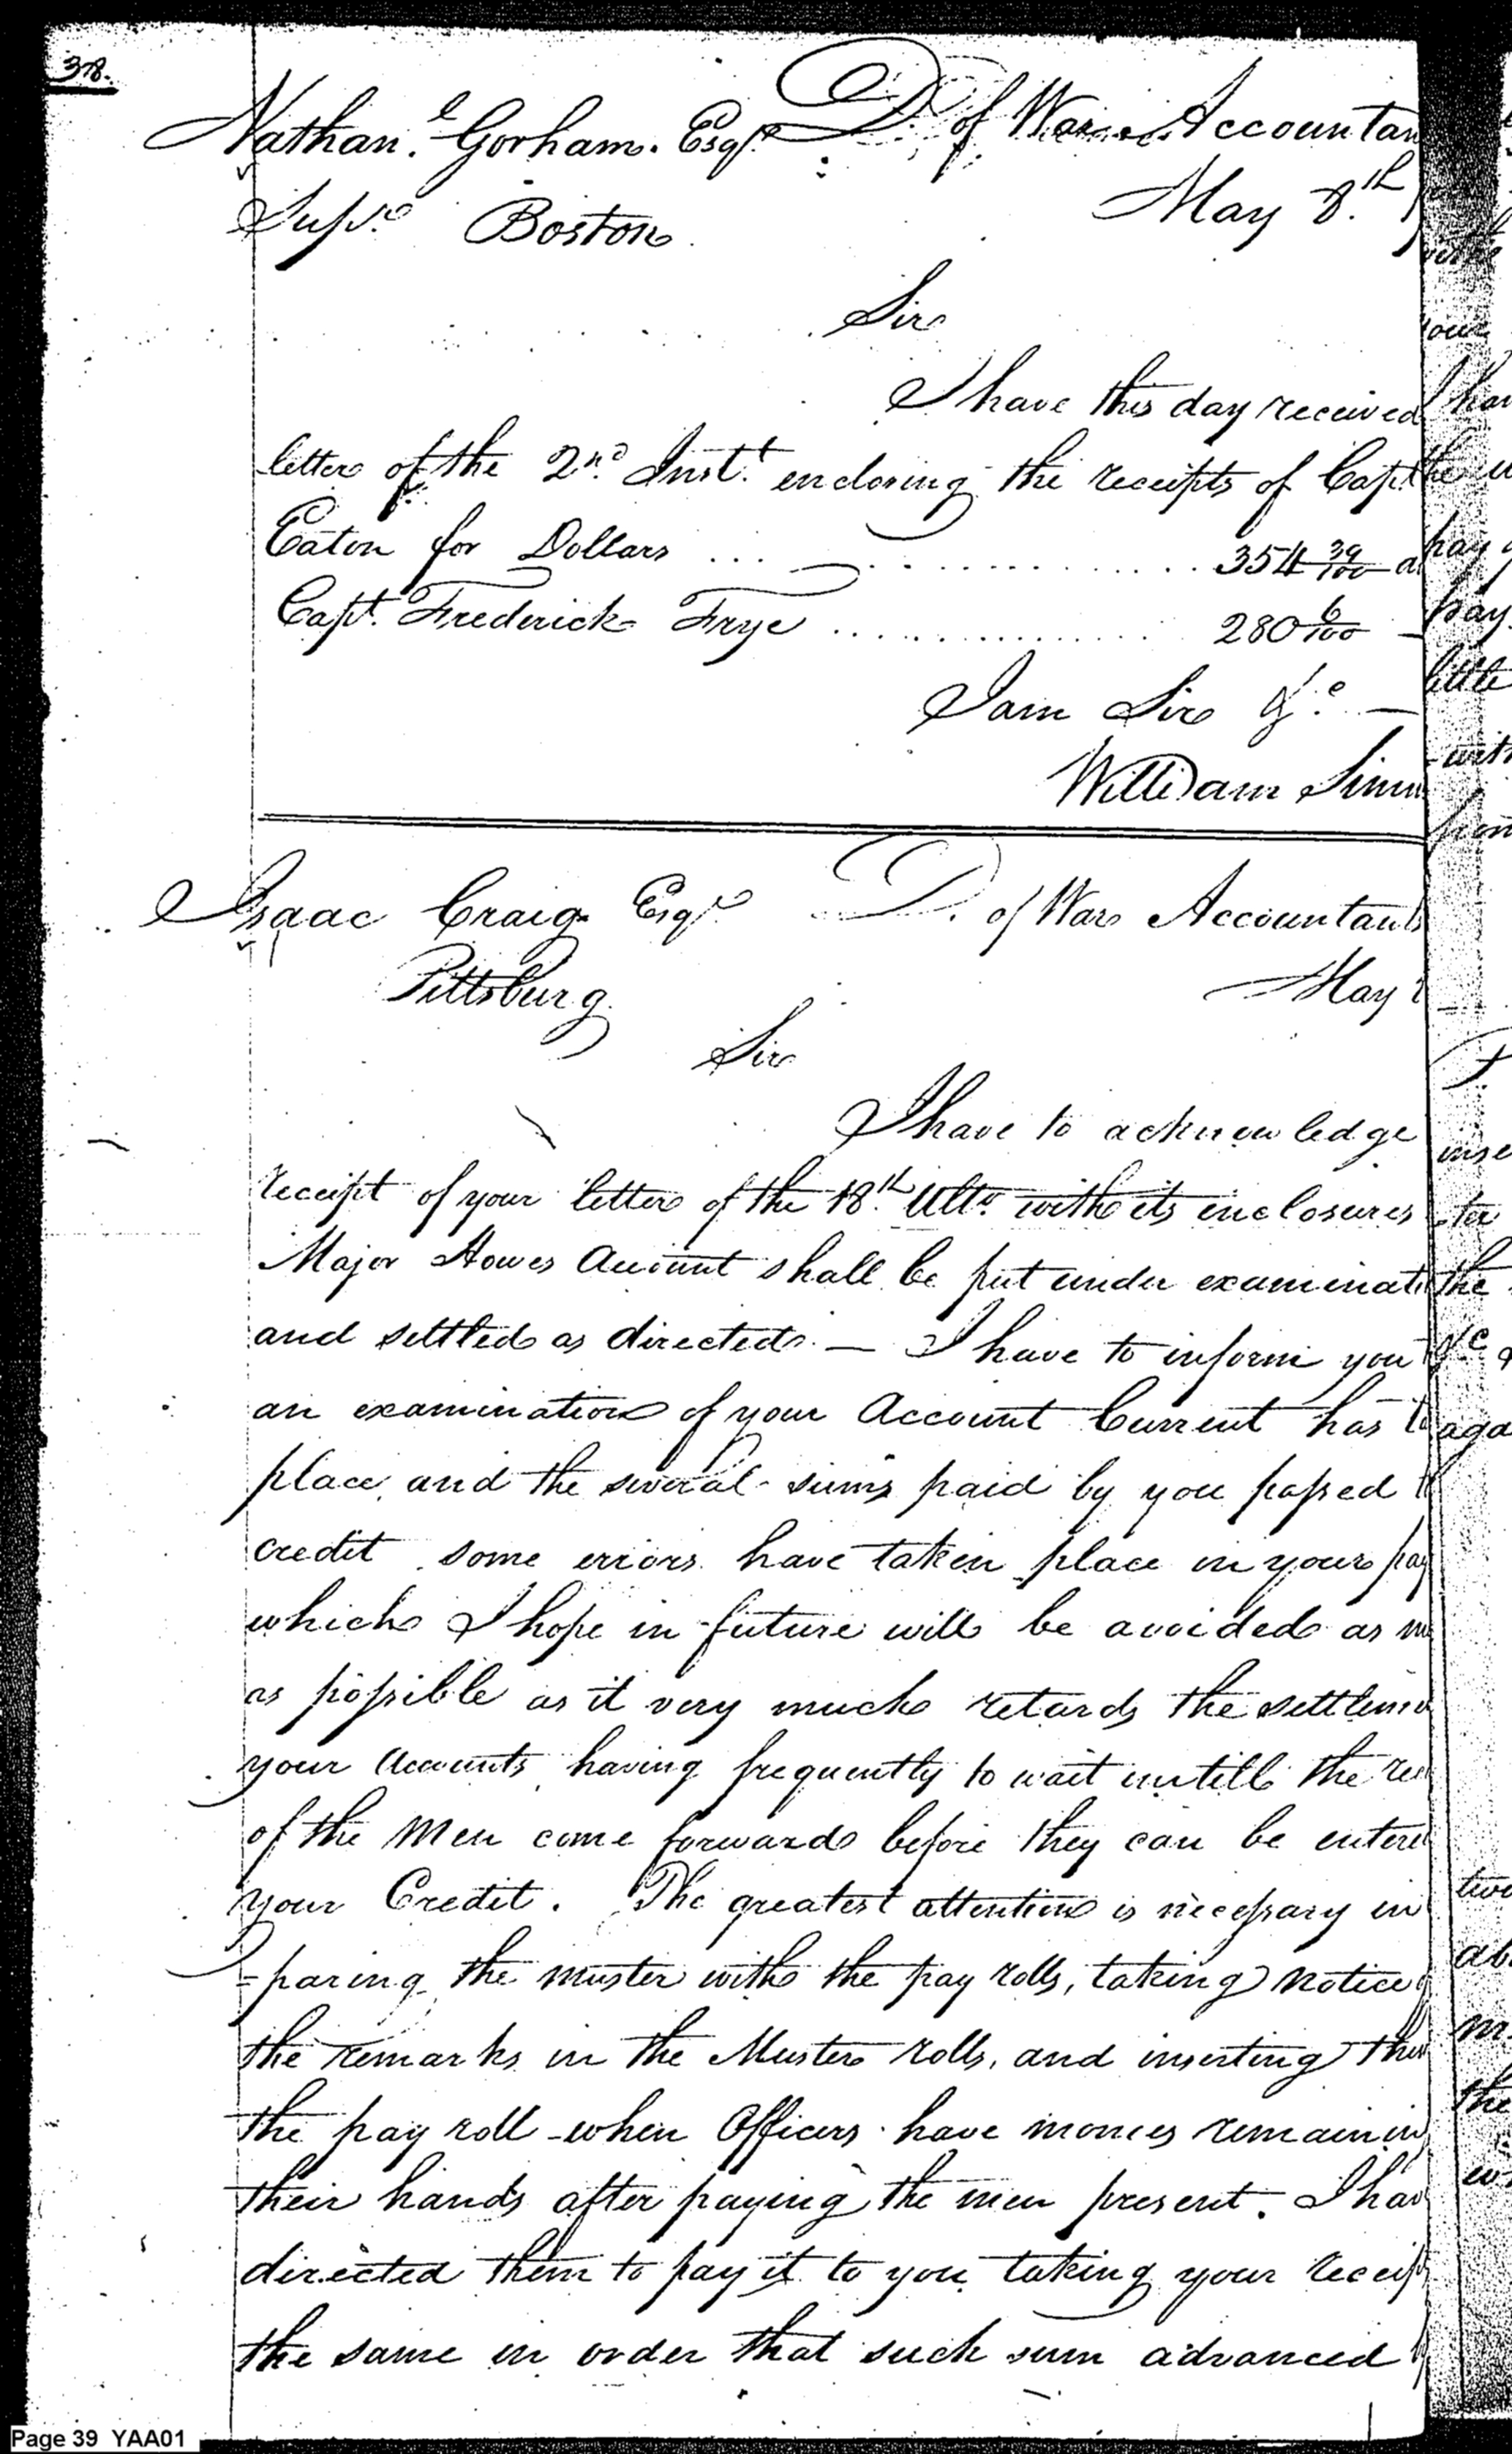 38.
Nathan.l Gorham. Esqr D. of War Accountan
Supr. Boston May 8.th
Sir
I have this day received
letter of the 2nd. Inst.t enclosing the receipts of Capt
Eaton for Dollars ... 354 39/100 a
Capt. Frederick Frye ... 280 6/100
I am Sir &c.
William Simm
Isaac Craig Esqr D. of War Accountants
Pittsburg May
Sir
I have to acknowledge
receipt of your letter of the 18.th Ulto. with its inclosures
Major Howes Account shall be put under examinati
and settled as directed — I have to inform you
an examination of your Account Current has t
place and the several sums paid by you passed t
credit some errors have taken place in your pay
which I hope in future will be avoided as m
as possible as it very much retards the settleme
your Accounts having frequently to wait untill the re
of the Men come forward before they can be entere
your Credit. The greatest attention is necessary in
=paring the muster with the pay rolls, taking notice
the remarks in the Muster rolls, and inserting the
the pay roll - when Officers have monies remainin
their hands after paying the men present. I hav
directed them to pay it to you taking your receip
the same in order that such sum advanced
Page 39 YAA01